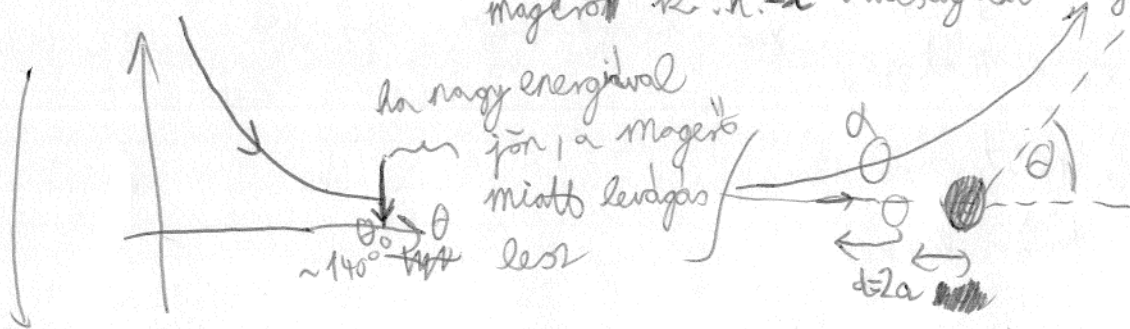 magerő
ha nagy energiával
jön, a magerő
miatt levágás
lesz
θ₀ θ
~140°
α
θ
d=2a